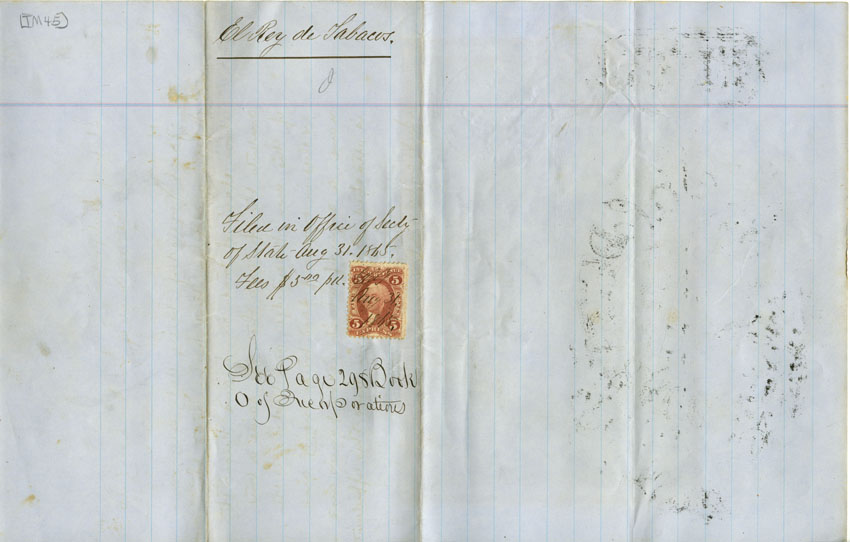 [TM45]
El Rey de Tabacos.
Filed in Office of Secty
of State Aug 31. 1865.
Fees $5.00 pd.
5 5
Aug 31
5 5
EXPRESS
See Page 298 Book
O of Incorporations